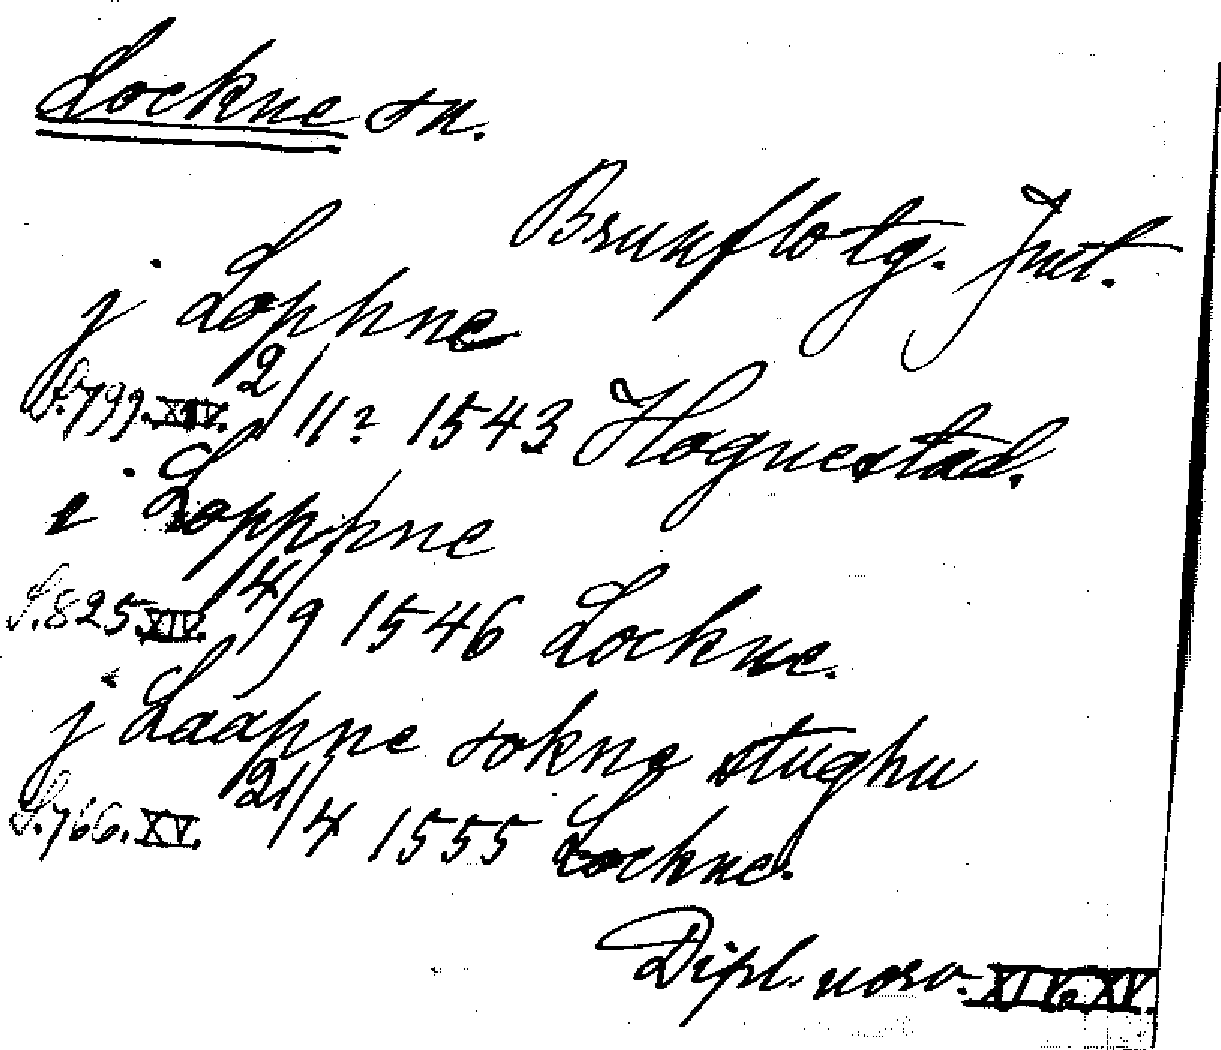 Lockne sn.
Brunflo tg. Jmt.
j Lophne
S. 799. XIV. 2/11? 1543 Hognestad.
i Lopphne
S. 825 XIV. 4/9 1546 Lockne.
j Laaphne sokne stughu
S. 766. XV. 21/4 1555 Lockne.
Dipl. norv. XIV o XV.